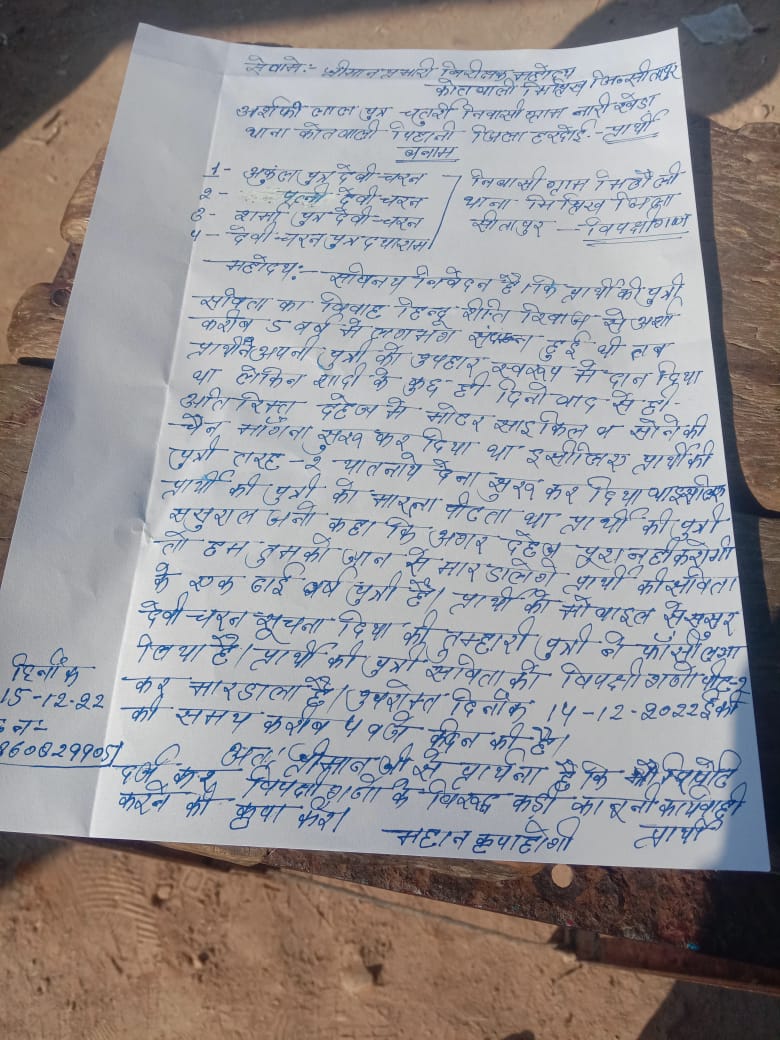 सेवामे:- श्रीमान प्रभारी निरीक्षक महोदय
कोतवाली मिश्रिख जि० सीतापुर
अशर्फी लाल पुत्र चतुरी निवासी ग्राम नारी खेडा
थाना कोतवाली पिहानी जिला हरदोई - प्रार्थी
बनाम
1- पुत्र देवी चरन
2- पत्नी देवी चरन
3- शर्मा पुत्र देवी चरन
4- देवी चरन पुत्र दयाराम
निवासी ग्राम
थाना मिश्रिख जिला
सीतापुर - विपक्षीगण
महोदय:- सविनय निवेदन है। कि प्रार्थी की पुत्री
सविता का विवाह हिन्दू रीति रिवाज से अर्शा
करीब 5 वर्ष में लगभग संपन्न हुई थी तब
प्रार्थी ने अपनी पुत्री को उपहार स्वरूप में दान दिया
था लेकिन शादी के कुछ ही दिनो वाद से ही-
अतिरिक्त दहेज मे मोटर साइकिल व सोने की
चैन माँगना सुरू कर दिया था इसीलिए प्रार्थी की
पुत्री तरह-२ यातनाये देना सुरू कर दिया था
प्रार्थी की पुत्री को मारता पीटता था प्रार्थी की पुत्री
ससुराल जनो कहा कि अगर दहेज पूरा नहीं करोगी
तो हम तुमको जान से मार डालेगे प्रार्थी की सविता
के एक ढाई वर्ष पुत्री है। प्रार्थी को मोवाइल से ससुर
देवी चरन सूचना दिया की तुम्हारी पुत्री ने फाँसी लगा
लिया है। प्रार्थी की पुत्री सविता को विपक्षी गणो पीट-२
कर मारडाला है। उपरोक्त दिनांक 14-12-2022 ई० को
की समय करीब 4 वजे दिन की है।
अतः श्रीमान जी से प्रार्थना है कि रिपोर्ट
दर्ज कर विपक्षीगणो के विरुद्ध कड़ी कानूनी कार्यवाही
करने की कृपा करे।
महान कृपा होगी प्रार्थी
दिनाँक
15-12-22